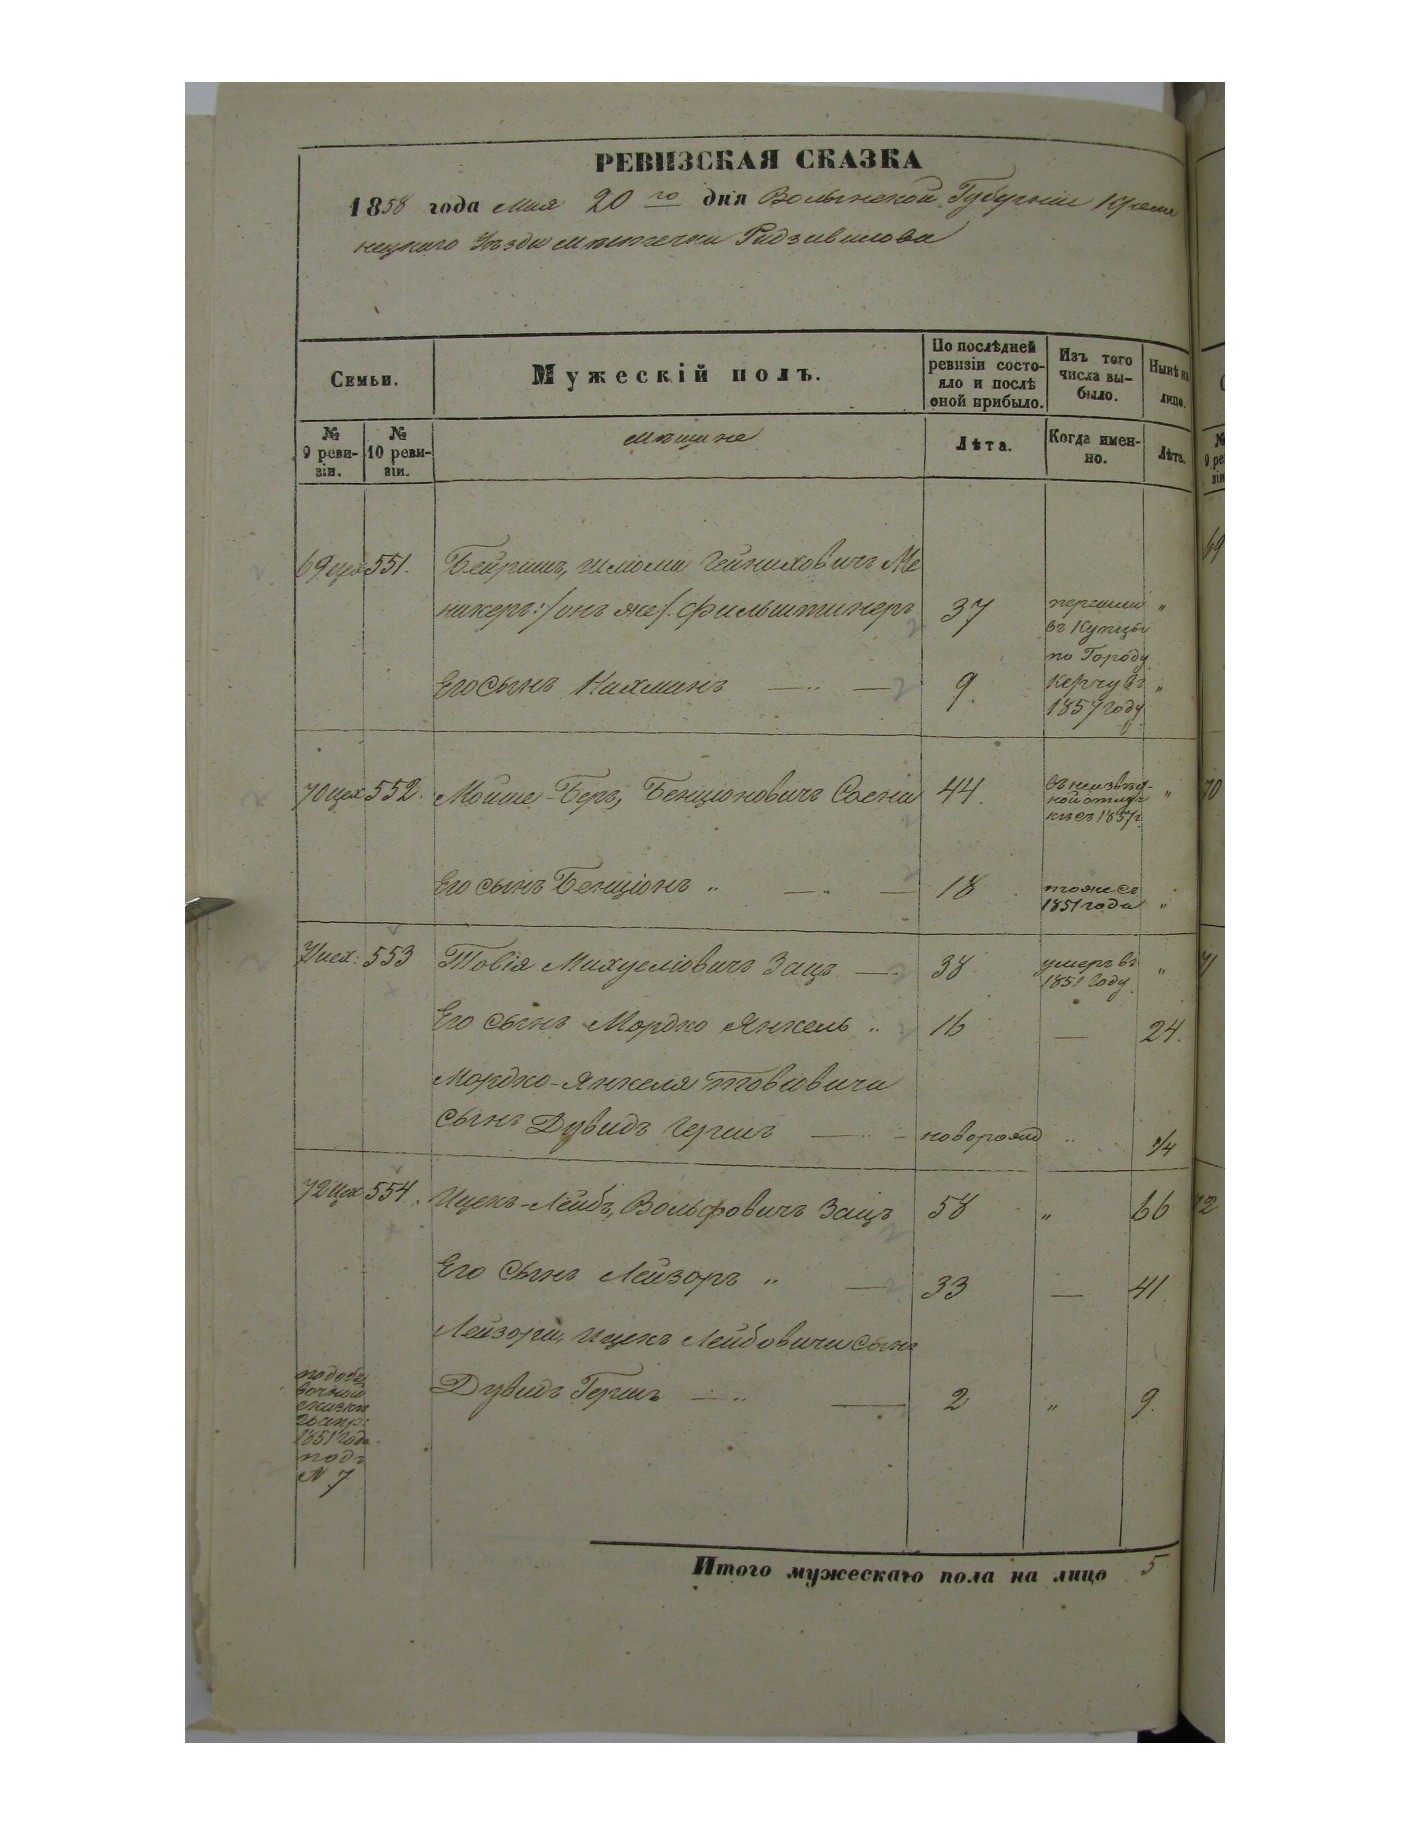 РЕВИЗСКАЯ СКАЗКА
1858 года мая 20 го дня Волынской Губерніи Креме
нецкаго Уѣзда мѣстечка Радзивилова
Семьи.
Мужескій полъ.
По послѣдней ревизіи состояло и послѣ оной прибыло.
Изъ того числа выбыло.
Нынѣ на лицо.
№ 9 ревизіи.
№ 10 ревизіи.
мѣщане
Лѣта.
Когда именно.
Лѣта.
69 цех 551. Бейришъ, Шлёма Гейниховичъ Ме
никеръ :/онъ же/. Фильштинеръ 37 перешли "
въ Купцы
по Городу
Его сынъ Нахманъ — " — 9. Керчу въ "
1857 году
70 цех 552. Мойше-Беръ, Бенціоновичъ Сосна 44. въ неизвѣст-
ной отлуч
кѣ съ 1857 г. "
Его сынъ Бенціонъ " — " — 18 тоже съ
1851 года "
71 цех: 553 Товія Михуеліовичъ Зацъ — 38 умеръ въ
1851 году "
Его сынъ Мордко Янкель " 16 — 24.
Мордко-Янкеля Товіовича
сынъ Дувидъ Гершъ — " — новорожд " 1/4
72 цех 554. Ицекъ-Лейбъ, Вольфовичъ Зацъ 58 " 66
Его сынъ Лейзоръ " — 33 — 41.
Лейзора, Ицекъ Лейбовича сынъ
Дувидъ Гершъ — " — 2 " 9.
по доба
вочной
сказкѣ
1851 года
подъ
№ 7
Итого мужескаго пола на лицо 5
69
70
71
72